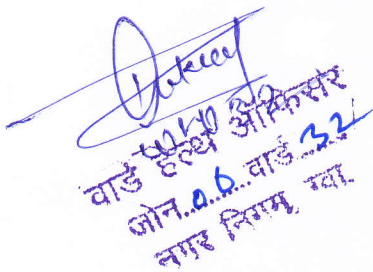 वार्ड हैल्थ ऑफिसर
जोन..06.....वार्ड..32...
नगर निगम, ग्वा.